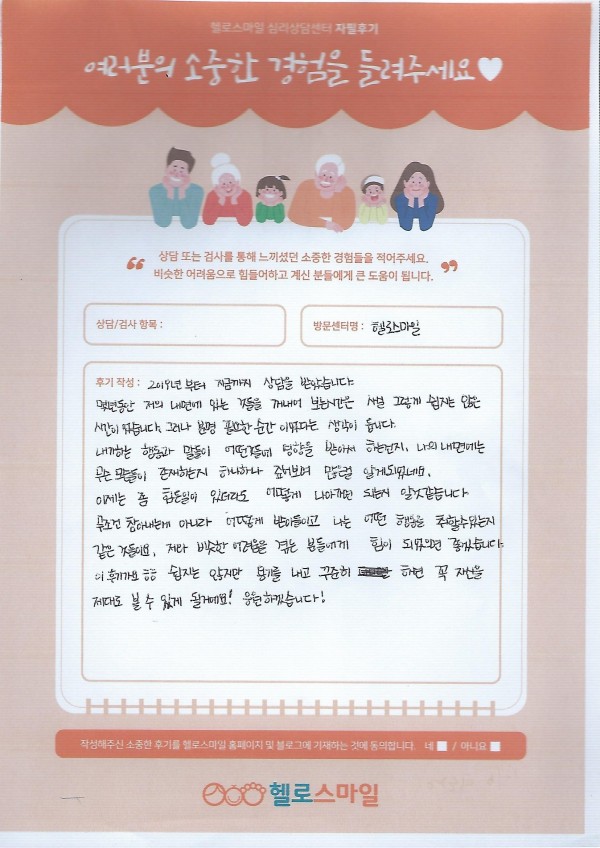 헬로스마일 심리상담센터 자필후기
여러분의 소중한 경험을 들려주세요
상담 또는 검사를 통해 느끼셨던 소중한 경험들을 적어주세요.
비슷한 어려움으로 힘들어하고 계신 분들에게 큰 도움이 됩니다.
상담/검사 항목 :
방문센터명 : 헬로스마일
후기 작성 : 2019년부터 지금까지 상담을 받았습니다.
몇년동안 저의 내면에 있는 것들을 꺼내어 보는시간은 사실 그렇게 쉽지는 않은
시간이었습니다. 그러나 분명 필요한 순간이었다는 생각이 듭니다.
내가하는 행동과 말들이 어떤것들에 영향을 받아서 하는건지, 나의 내면에는
무슨 모습들이 존재하는지 하나하나 짚어보며 많은걸 알게되었네요.
이제는 좀 힘든일이 있더라도 어떻게 나아가면 되는지 알것같습니다
무조건 참아내는게 아니라 어떻게 받아들이고 나는 어떤 행동을 취할수있는지
같은 것들이요. 저와 비슷한 어려움을 겪는 분들에게 힘이 되었으면 좋겠습니다.
이 후기가요 ㅎㅎ 쉽지는 않지만 용기를 내고 꾸준히 하면 꼭 자신을
제대로 볼 수 있게 될거예요! 응원하겠습니다!
작성해주신 소중한 후기를 헬로스마일 홈페이지 및 블로그에 기재하는 것에 동의합니다. 네 / 아니요
헬로스마일